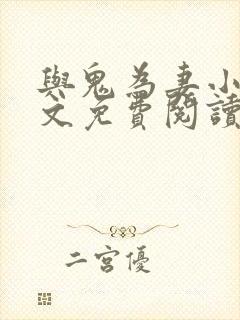 與鬼為妻小
文免費閱讀
二宮優